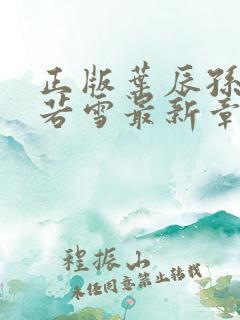 正版叶辰孙
若雪最新章
程振山
未经同意禁止转载